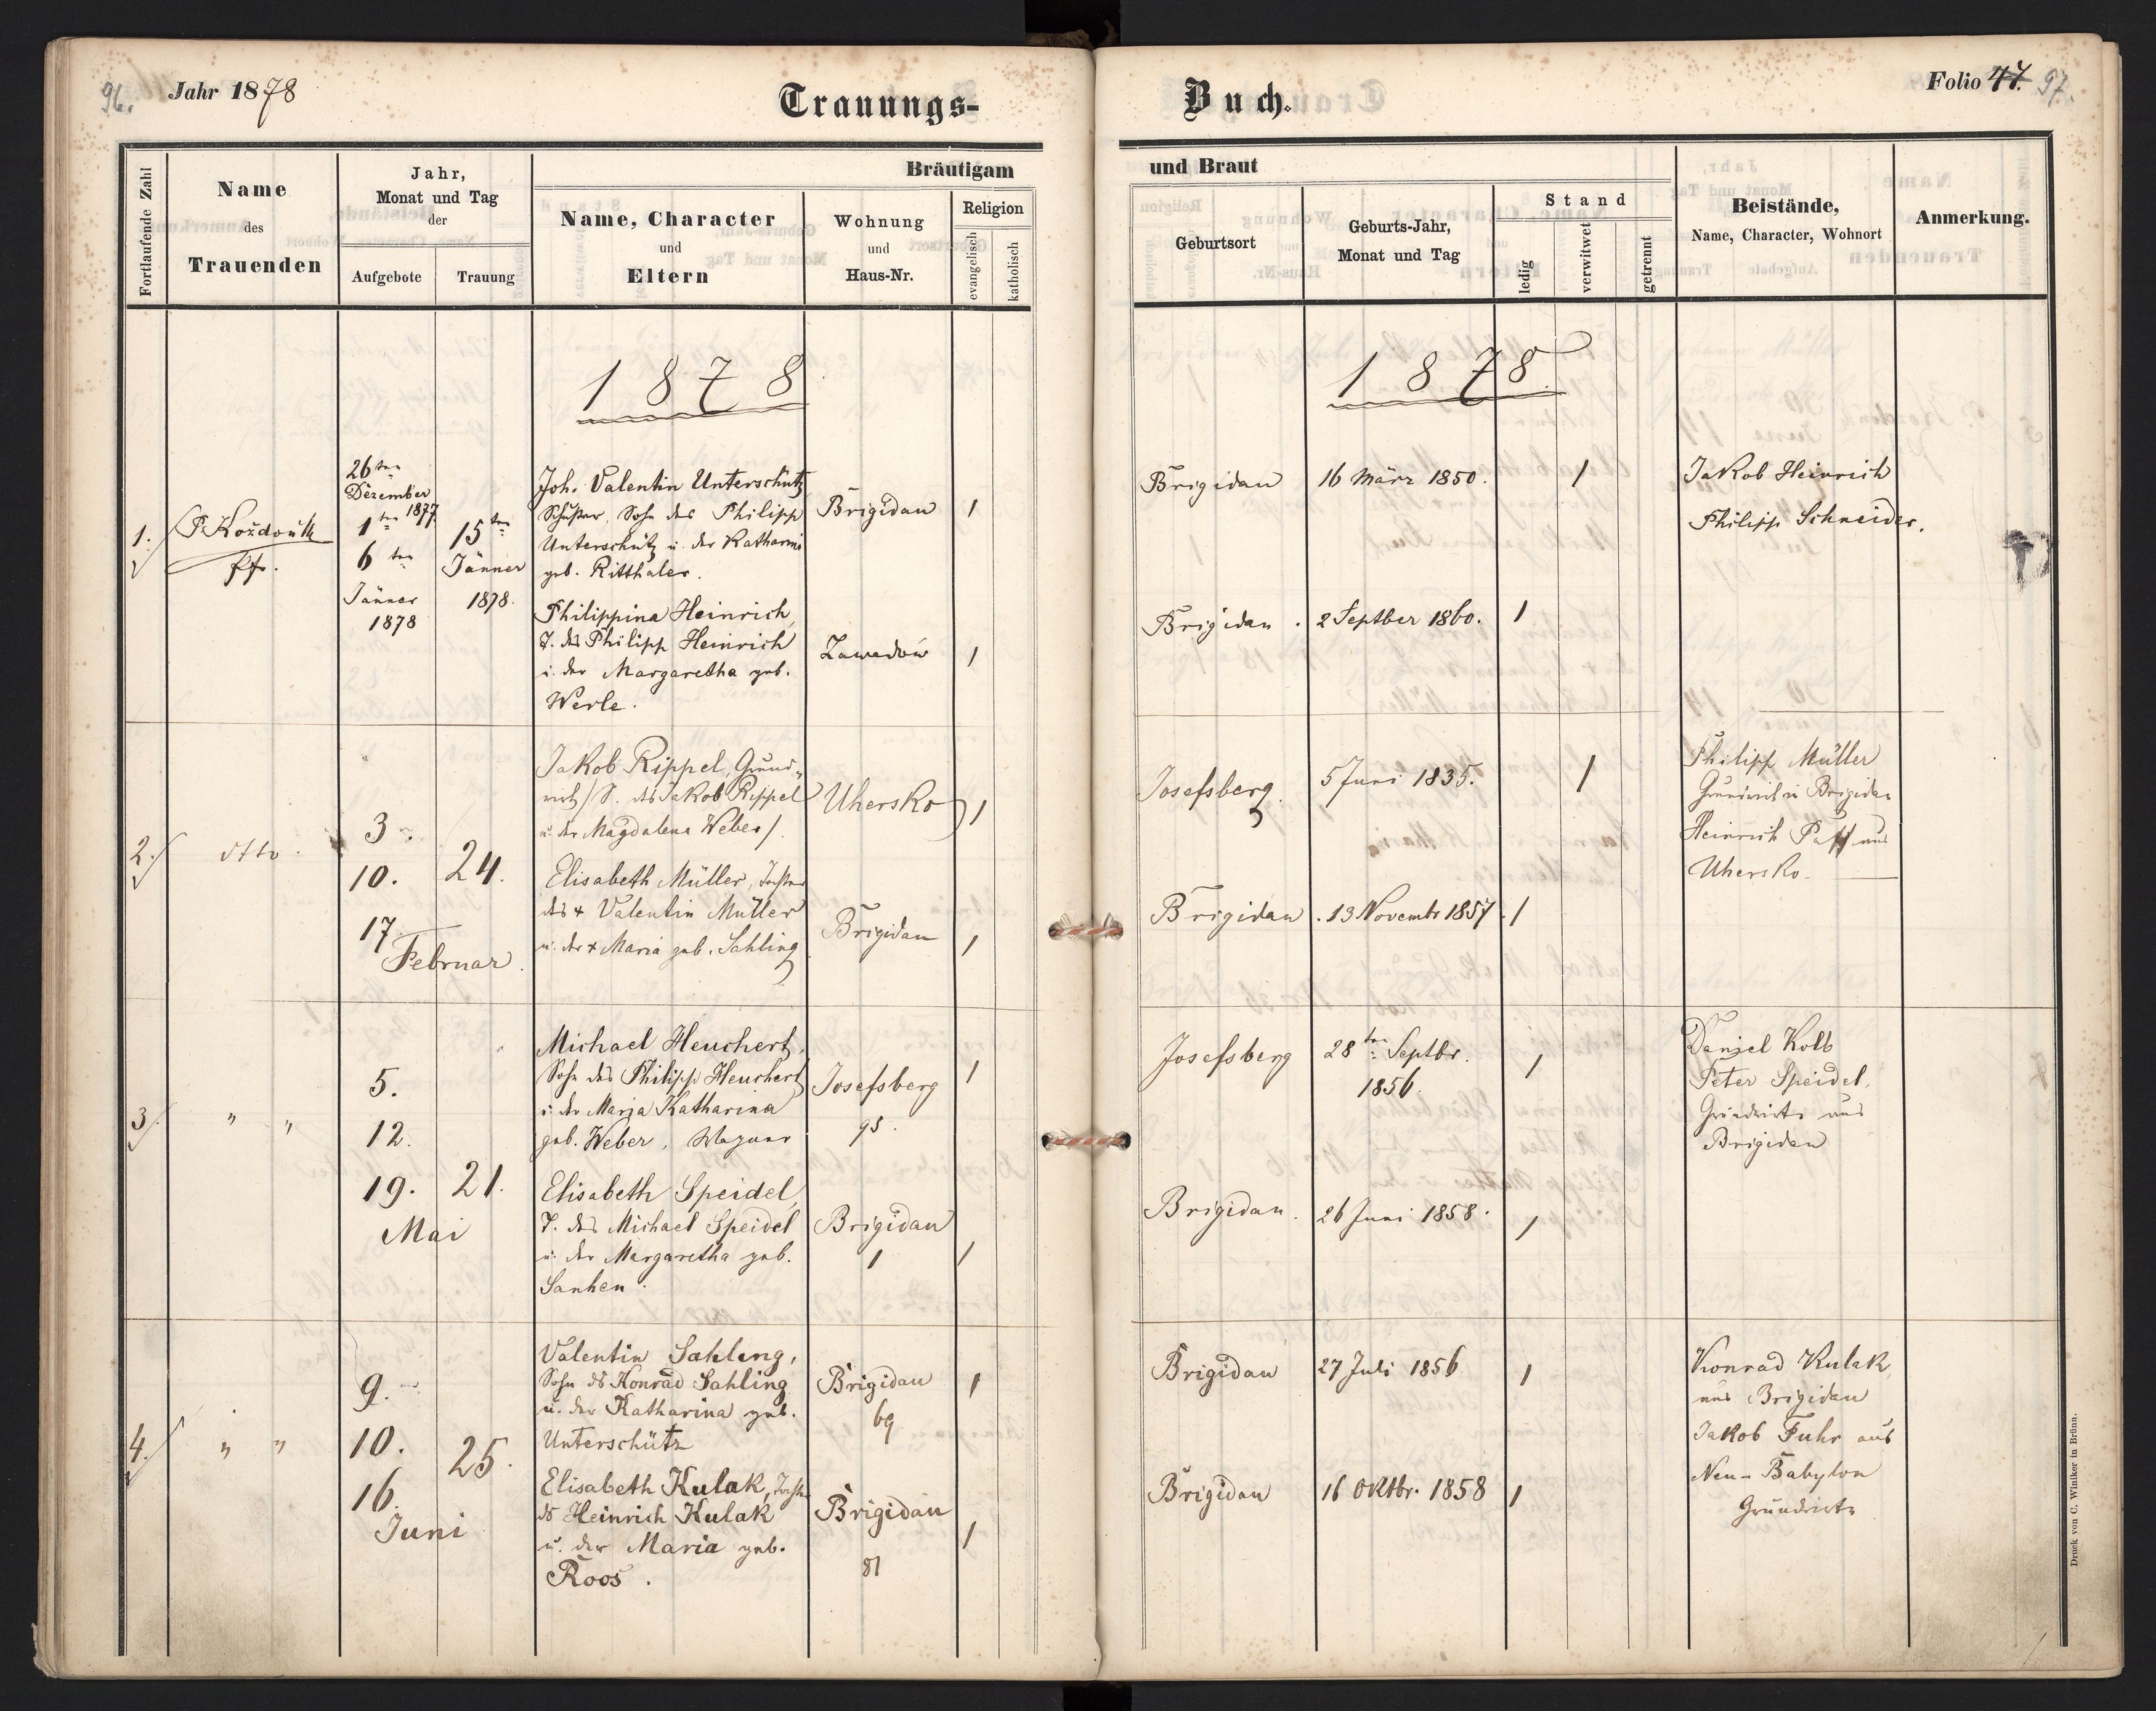 96.
Jahr 1878
Trauungs-
Buch.
Folio 47. 97.
Fortlaufende Zahl
Name
des
Trauenden
Jahr,
Monat und Tag
der
Aufgebote
Trauung
Bräutigam
Name, Character
und
Eltern
Wohnung
und
Haus-Nr.
Religion
evangelisch
katholisch
und Braut
Geburtsort
Geburts-Jahr,
Monat und Tag
Stand
ledig
verwitwet
getrennt
Beistände,
Name, Character, Wohnort
Anmerkung.
1878
1878.
1.
26ten
Dezember
1877
1ten
6ten
Jänner
1878
15ten
Jänner
1878.
Joh. Valentin Unterschütz
Schuster, Sohn des Philipp
Unterschütz u. der Katharina
geb. Ritthaler.
Brigidau
1
Brigidau
16 März 1850.
1
Jakob Heinrich
Philipp Schneider.
Philippina Heinrich,
T. des Philipp Heinrich
u. der Margaretha geb.
Werle.
Zawadów
1
Brigidau.
2 Septber 1860.
1
2.
dtto
3.
10.
17.
Februar
24.
Jakob Rippel, Grund-
wirth /S. des Jakob Rippel
u. der Magdalena Weber/.
Uhersko
1
Josefsberg
5 Juni 1835.
1
Philipp Müller
Grundwirth in Brigidau
Heinrich Paff aus
Uhersko
Elisabeth Müller, Tochter
des + Valentin Müller
u. der + Maria geb. Sahling
Brigidau
1
Brigidau
13 Novemb 1857.
1
3.
" "
5.
12.
19.
Mai
21.
Michael Heuchert,
Sohn des Philipp Heuchert
u. der Maria Katharina
geb. Weber, Wagner
Josefsberg
95.
1
Josefsberg
28ten Septbr.
1856.
1
Daniel Kolb
Peter Speidel,
Grundwirte aus
Brigidau
Elisabeth Speidel,
T. des Michael Speidel
u. der Margaretha geb.
Brigidau
1
1
Brigidau.
26 Juni 1858.
1
4.
" "
9.
10.
16.
Juni
25.
Valentin Sahling,
Sohn des Konrad Sahling
u. der Katharina geb.
Unterschütz
Brigidau
69
1
Brigidau
27 Juli 1856
1
Konrad Kulak
aus Brigidau
Jakob Fuhr aus
Neu-Babylon
Grundwirte
Elisabeth Kulak, Tochter
des Heinrich Kulak
u. der Maria geb.
Roos.
Brigidau
81
1
Brigidau
16 Oktbr. 1858
1
Druck von C. Winiker in Brünn.